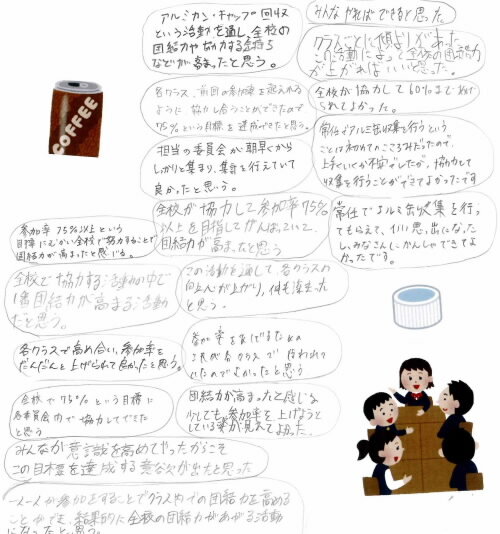 アルミカン・キャップ回収
という活動を通し、全校の
団結力や協力する気持ち
などが高まったと思う。
みんなやればできると思った
この活動に
各クラス、前回の参加率を超えれる
ように協力し合うことができたので
75%という目標を達成できたと思う。
全校が協力して60%まで
られてよかった。
担当の委員会が朝早くから
しっかりと集まり、集計を行えていて
良かったと思う。
常任でアルミ缶収集を行うという
ことは初めてのこころみだったので、
上手くいくか不安でしたが、協力して
収集を行うことができてよかったです
全校が協力して参加率75%
以上を目指してがんばっていて、
団結力が高まったと思う
常任でアルミ缶収集を行っ
てもらえて、いい思い出になった
し、みなさんにかんしゃできてよ
かったです。
参加率75%以上という
目標にむかい全校で協力することで
団結力が高まったと感じる。
全校で協力する活動の中で
1番団結力が高まる活動
だと思う。
この活動を通して、各クラスの
向上心が上がり、絆も深まった
と思う。
各クラスで高め合い、参加率を
だんだんと上げられて良かったと思う。
参加率をあげるための
これが各クラスで行われて
いたのでよかったと思う
全校で75%という目標に
各委員会内で協力してできた
と思う
団結力が高まったと感じる
少しでも参加率を上げようと
している姿が見えてよかった。
みんなが意識を高めてやったからこそ
この目標を達成する
が出たと思った
一人一人が参加をすることでクラスや
の団結力を高める
ことができ、結果的に全校の団結力があがる活動
になったと思う。
COFFEE